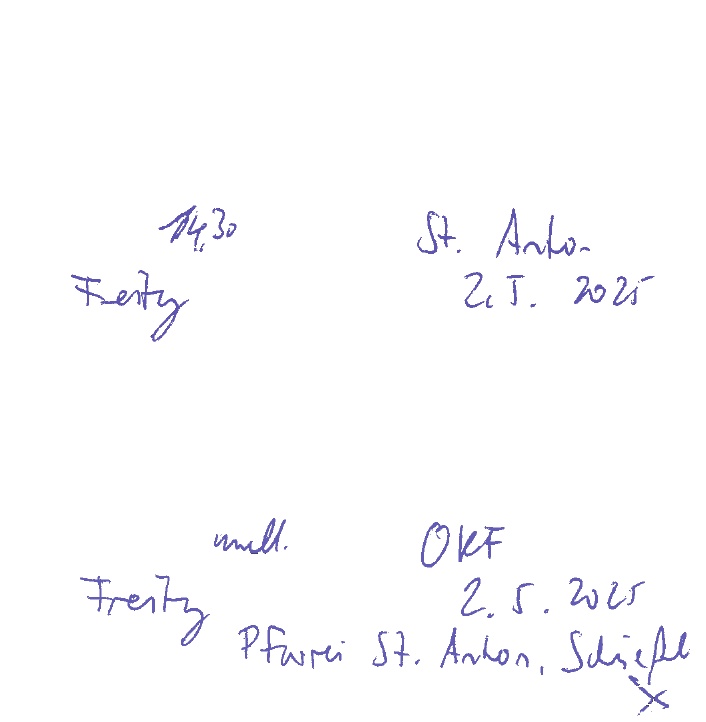 14.30 St. Anton
Freitag 2. 5. 2025
OKF
Freitag 2. 5. 2025
Pfarrei St. Anton,